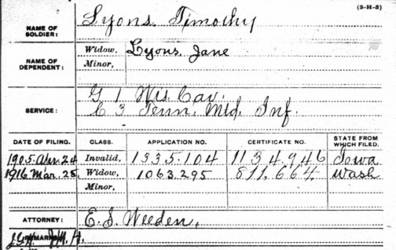 (3-H-3)
NAME OF SOLDIER: Lyons, Timothy
NAME OF DEPENDENT: Widow, Lyons, Jane
Minor,
SERVICE: G 1 Wis. Cav.
C 3 Tenn. Mtd. Inf.
DATE OF FILING. CLASS. APPLICATION NO. CERTIFICATE NO. STATE FROM WHICH FILED.
1905 24 Invalid, 1335.104 1134946 Iowa
1916 Mar. 25 Widow, 1063.295 811.664 Wash
Minor,
ATTORNEY: E. J. Weeden.